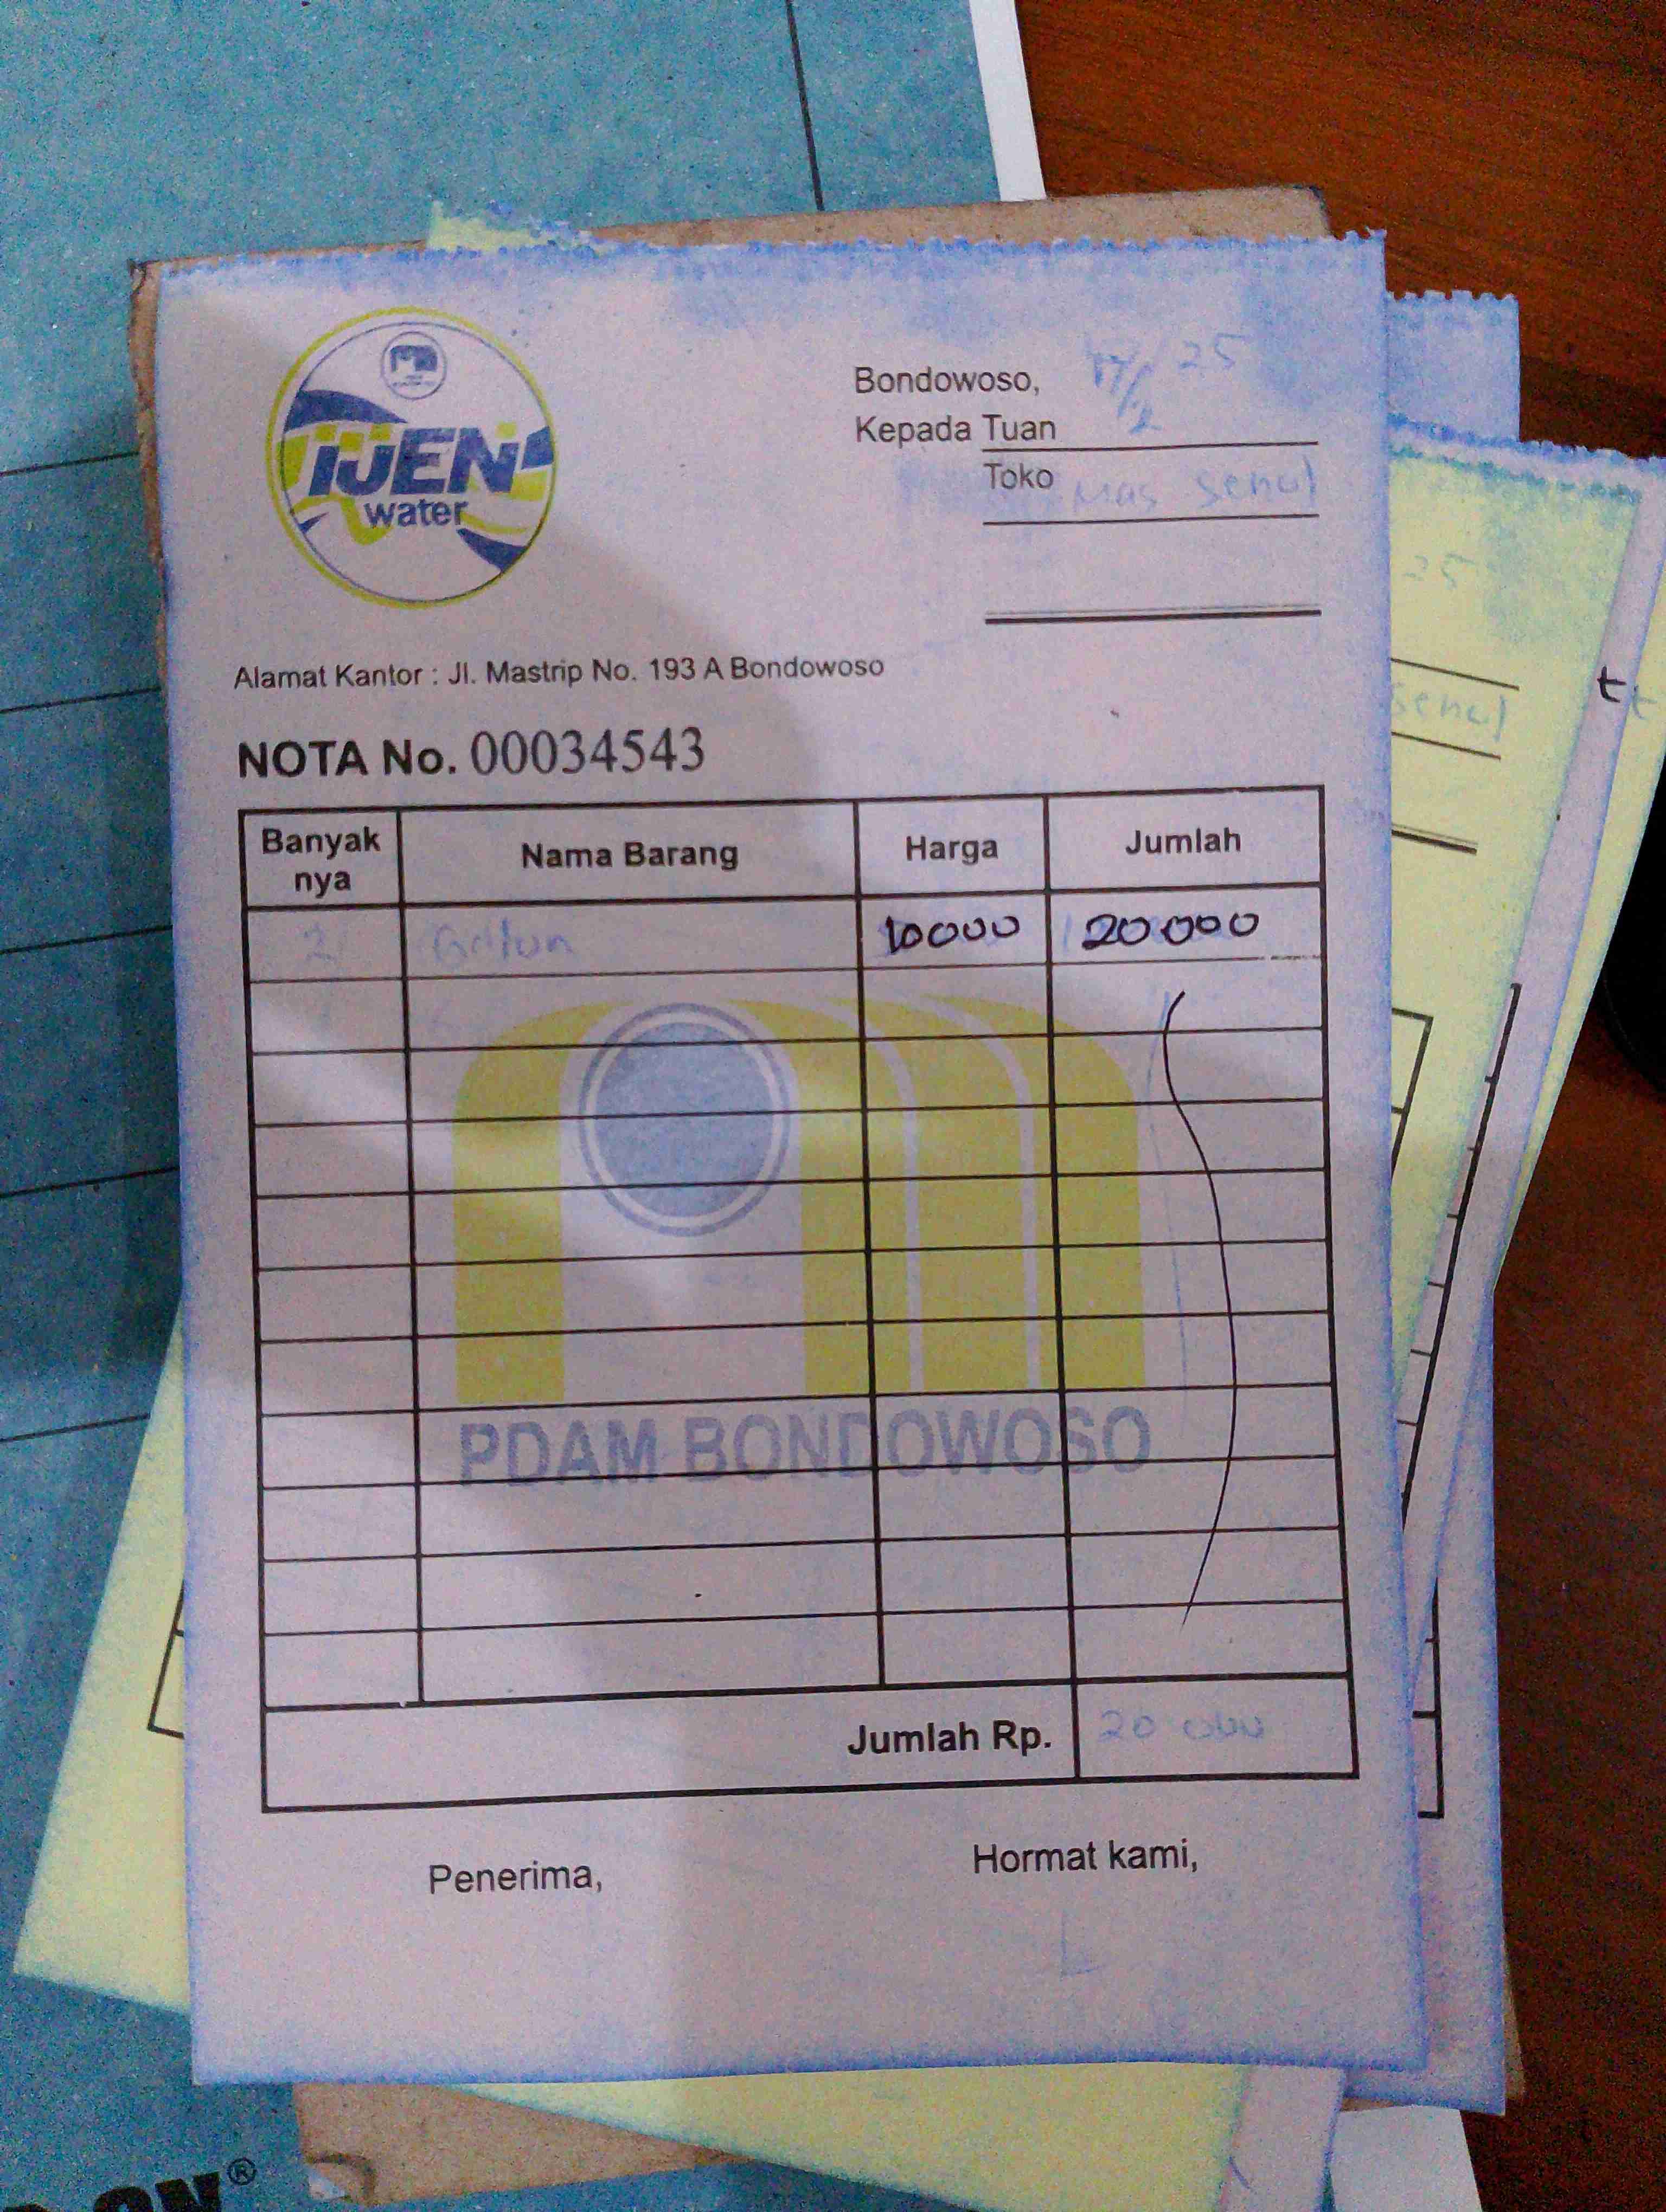 IJEN
water
Bondowoso, 17/2 25
Kepada Tuan
Toko Mas
Alamat Kantor : Jl. Mastrip No. 193 A Bondowoso
NOTA No. 00034543
Banyak nya Nama Barang Harga Jumlah
2 Galon 10000 20000
PDAM BONDOWOSO
Jumlah Rp. 20 000
Penerima, Hormat kami,
25
®